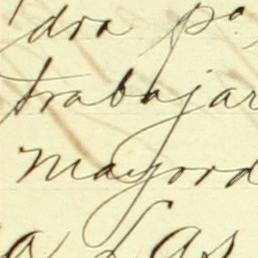 dra pa
trabajar
mayord
a Las